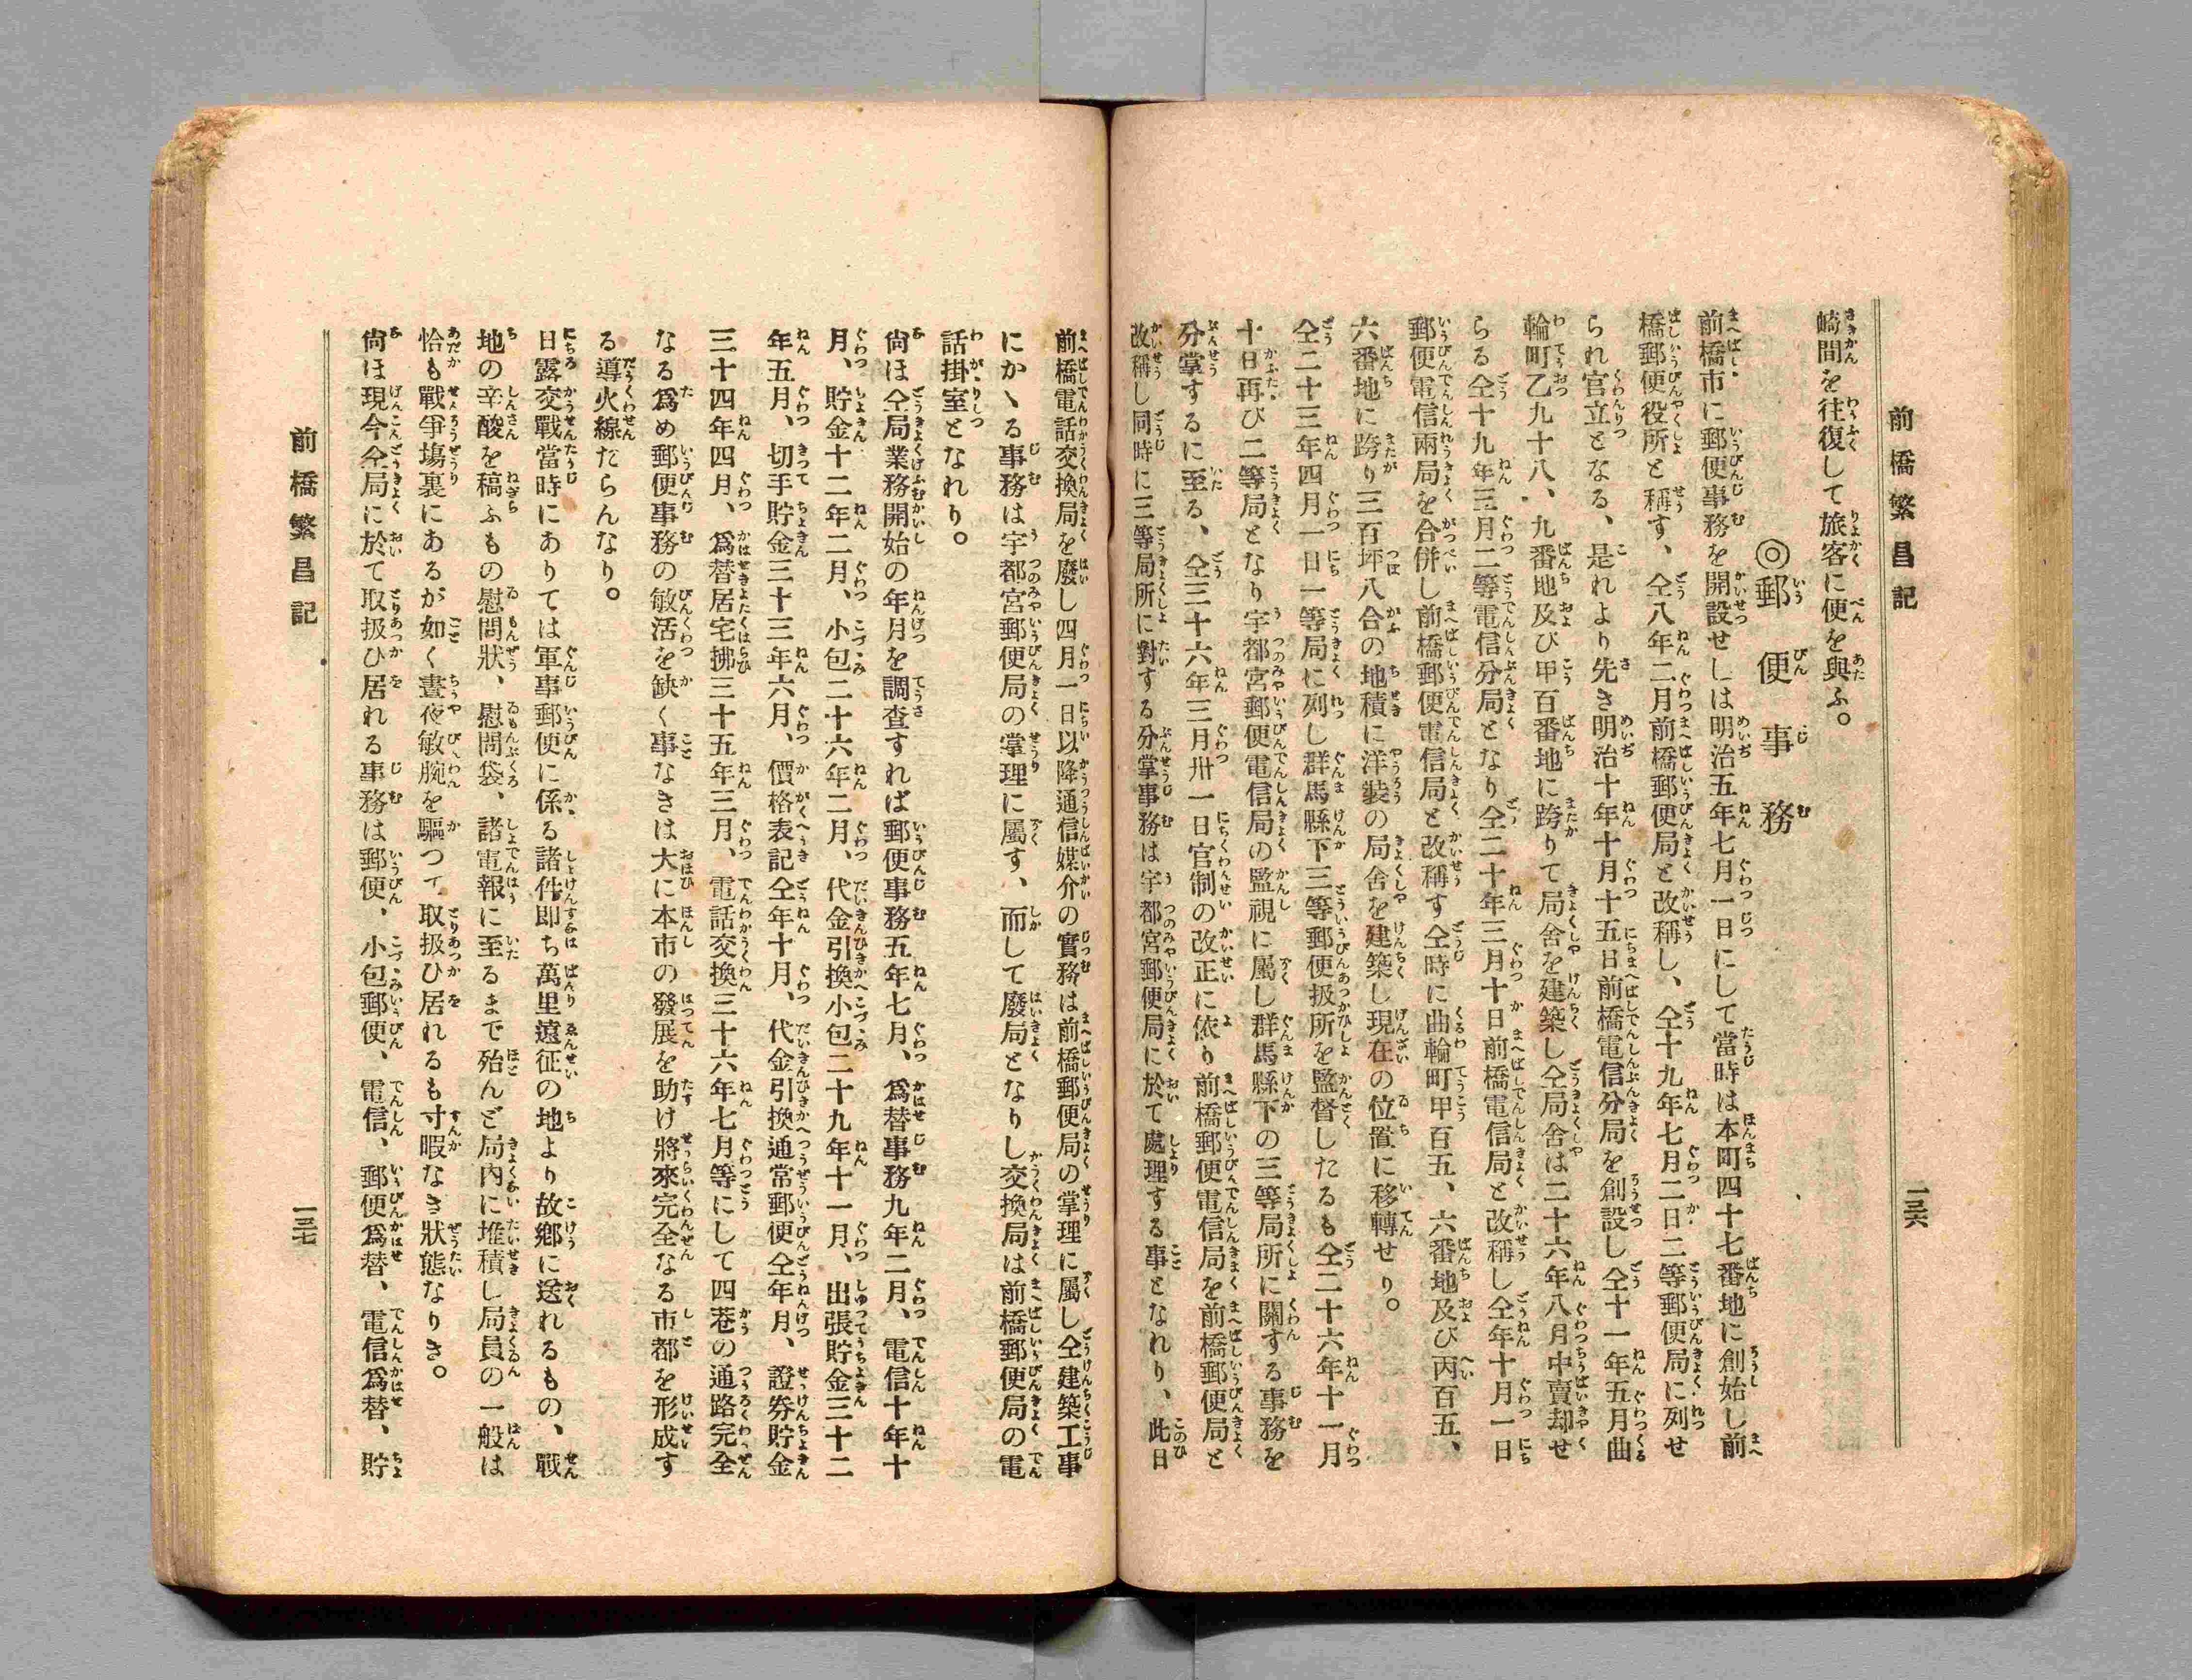 前橋繁昌記
一三六
崎間を往復して旅客に便を與ふ。
◎郵便事務
前橋市に郵便事務を開設せしは明治五年七月一日にして當時は本町四十七番地に創始し前
橋郵便役所と稱す、仝八年二月前橋郵便局と改稱し、仝十九年七月二日二等郵便局に列せ
られ官立となる、是れより先き明治十年十月十五日前橋電信分局を創設し仝十一年五月曲
輪町乙九十八、九番地及び甲百番地に跨りて局舍を建築し仝局舍は二十六年八月中賣却せ
らる仝十九年三月二等電信分局となり仝二十年三月十日前橋電信局と改稱し仝年十月一日
郵便電信兩局を合併し前橋郵便電信局と改稱す仝時に曲輪町甲百五、六番地及び丙百五、
六番地に跨り三百坪八合の地積に洋裝の局舍を建築し現在の位置に移轉せり。
仝二十三年四月一日一等局に列し群馬縣下三等郵便扱所を監督したるも仝二十六年十一月
十日再び二等局となり宇都宮郵便電信局の監視に屬し群馬縣下の三等局所に關する事務を
分掌するに至る、仝三十六年三月卅一日官制の改正に依り前橋郵便電信局を前橋郵便局と
改稱し同時に三等局所に對する分掌事務は宇都宮郵便局に於て處理する事となれり、此日
前橋電話交換局を廢し四月一日以降通信媒介の實務は前橋郵便局の掌理に屬し仝建築工事
にかゝる事務は宇都宮郵便局の掌理に屬す、而して廢局となりし交換局は前橋郵便局の電
話掛室となれり。
尙ほ仝局業務開始の年月を調査すれば郵便事務五年七月、爲替事務九年二月、電信十年十
月、貯金十二年二月、小包二十六年二月、代金引換小包二十九年十一月、出張貯金三十二
年五月、切手貯金三十三年六月、價格表記仝年十月、代金引換通常郵便仝年月、證券貯金
三十四年四月、爲替居宅拂三十五年三月、電話交換三十六年七月等にして四巷の通路完全
なる爲め郵便事務の敏活を缺く事なきは大に本市の發展を助け將來完全なる市都を形成す
る導火線たらんなり。
日露交戰當時にありては軍事郵便に係る諸件即ち萬里遠征の地より故鄕に送れるもの、戰
地の辛酸を稿ふもの慰問狀、慰問袋、諸電報に至るまで殆んど局內に堆積し局員の一般は
恰も戰爭塲裏にあるが如く晝夜敏腕を驅つて取扱ひ居れるも寸暇なき狀態なりき。
尙ほ現今仝局に於て取扱ひ居れる事務は郵便、小包郵便、電信、郵便爲替、電信爲替、貯
前橋繁昌記
一三七